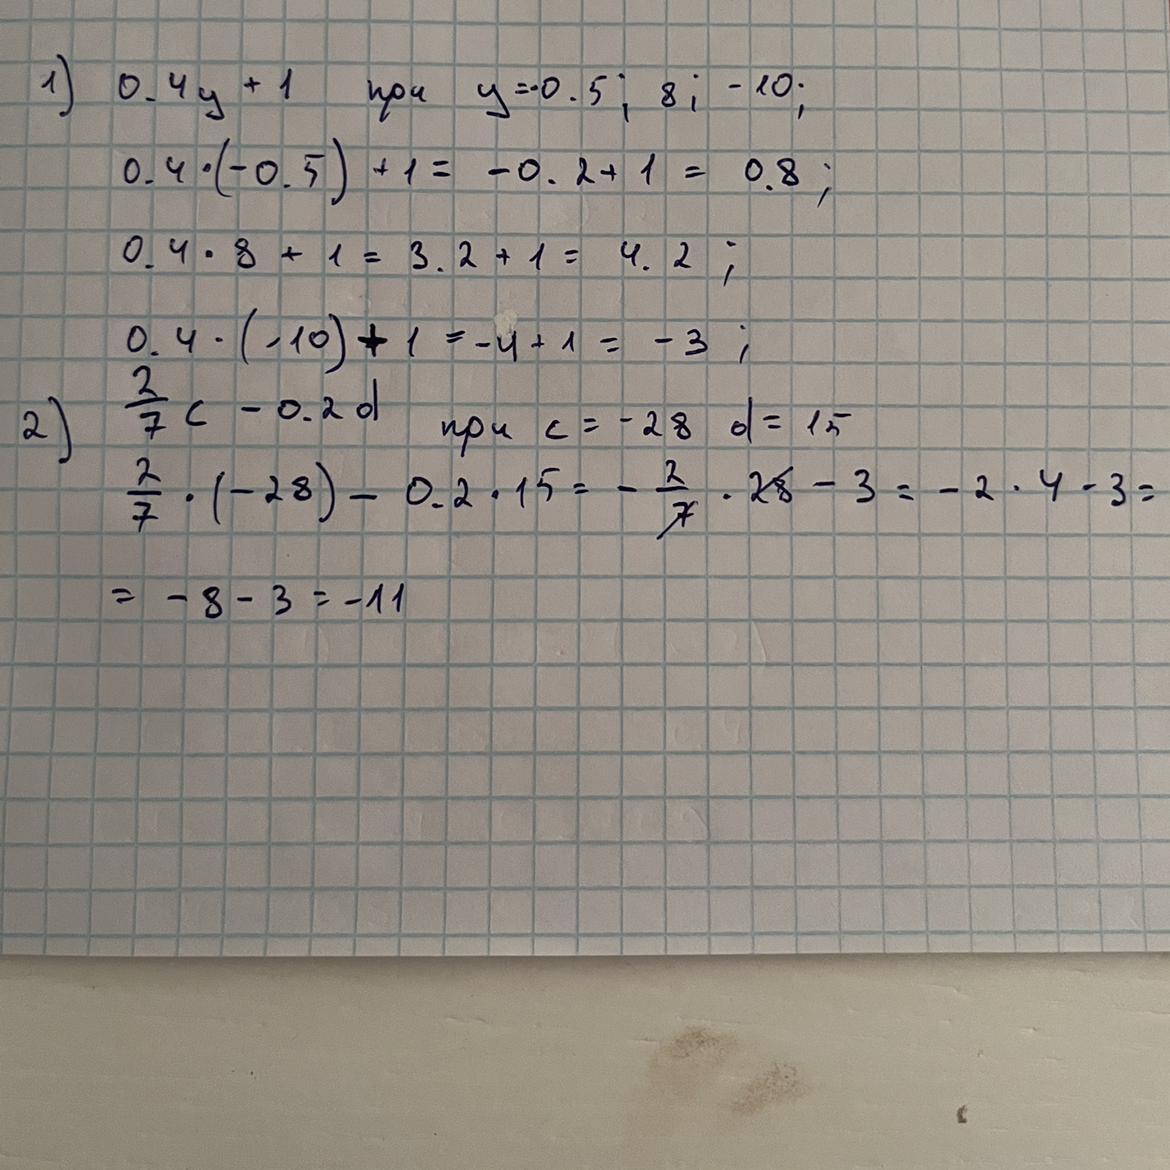 1) 0.4y + 1 при y=-0.5; 8; -10;
0.4·(-0.5) + 1 = -0.2 + 1 = 0.8;
0.4 · 8 + 1 = 3.2 + 1 = 4.2;
0.4 · (-10) + 1 = -4 + 1 = -3;
2) 2/7 c - 0.2d при c = -28 d = 15
2/7 · (-28) - 0.2 · 15 = - 2/7 · 28 - 3 = -2 · 4 - 3 =
= -8 - 3 = -11